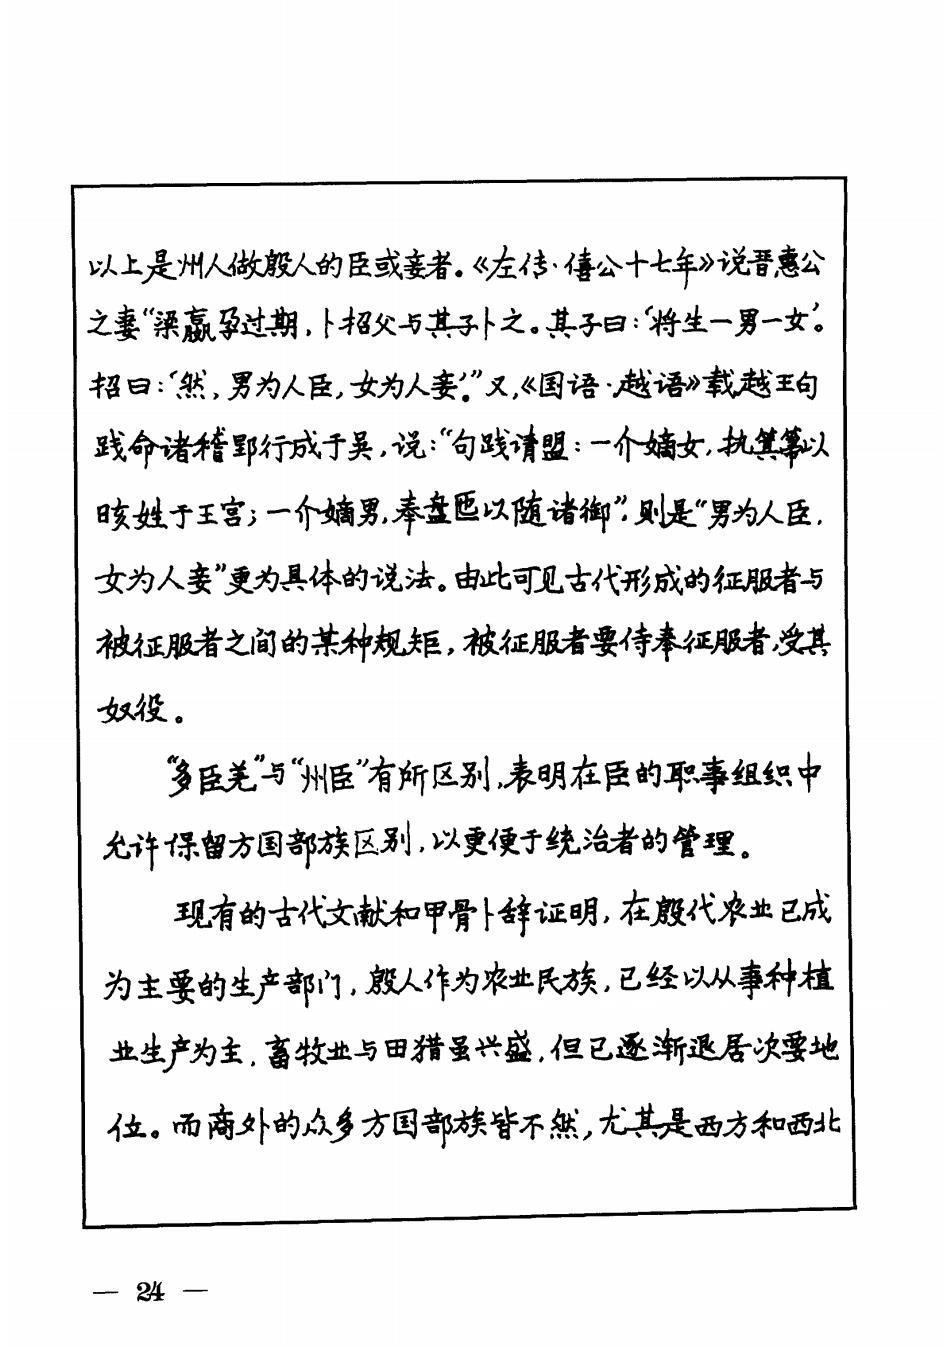 以上是州人做殷人的臣或妾者。《左传·僖公十七年》说晋惠公
之妻“梁嬴孕过期，卜招父与其子卜之。其子曰：‘将生一男一女’。
招曰：‘然，男为人臣，女为人妾’。”又，《国语·越语》载越王句
践命诸稽郢行成于吴，说：“句践请盟：一介嫡女，执箕箒以
晐姓于王宫；一介嫡男，奉盘匜以随诸御”，则是“男为人臣，
女为人妾”更为具体的说法。由此可见古代形成的征服者与
被征服者之间的某种规矩，被征服者要侍奉征服者，受其
奴役。
“多臣羌”与“州臣”有所区别，表明在臣的职事组织中
允许保留方国部族区别，以更便于统治者的管理。
现有的古代文献和甲骨卜辞证明，在殷代农业已成
为主要的生产部门，殷人作为农业民族，已经以从事种植
业生产为主，畜牧业与田猎虽兴盛，但已逐渐退居次要地
位。而商外的众多方国部族皆不然，尤其是西方和西北
— 24 —